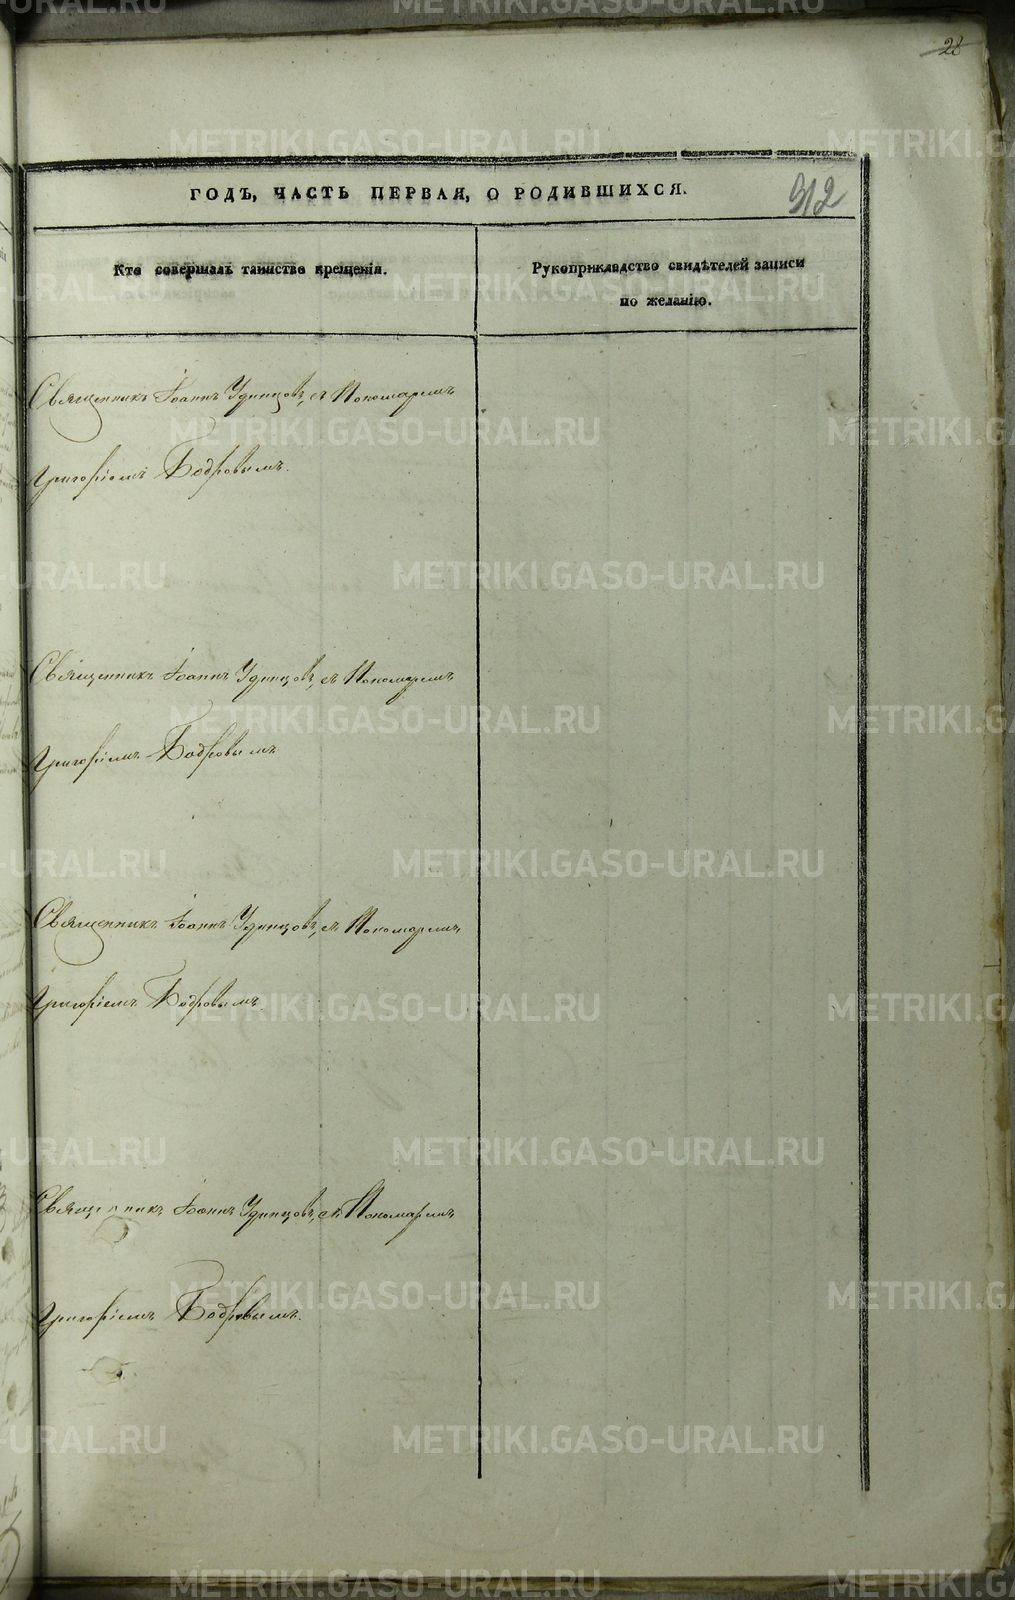 28
ГОДЪ, ЧАСТЬ ПЕРВАЯ, О РОДИВШИХСЯ.
312
Кто совершалъ таинство крещенія.
Рукоприкладство свидѣтелей записи
по желанію.
Священникъ Іоаннъ Удинцовъ, съ Пономаремъ
Григоріемъ Бодровымъ.
Священникъ Іоаннъ Удинцовъ, съ Пономаремъ
Григоріемъ Бодровымъ
Священникъ Іоаннъ Удинцовъ, съ Пономаремъ
Григоріемъ Бодровымъ
Священникъ Іоаннъ Удинцовъ, съ Пономаремъ
Григоріемъ Бодровымъ.
METRIKI.GASO-URAL.RU